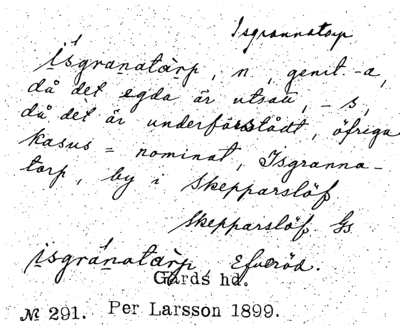 Isgrannatorp
ísgranatàrp, n, genit -a,
då det egda är utsatt, -s,
då det är underförstådt, öfriga
kasus = nominat, Isgranna-
torp, by i Skepparslöf
Skepparslöf Gs
ísgranatàrp, Efveröd.
Gärds hd.
№ 291. Per Larsson 1899.